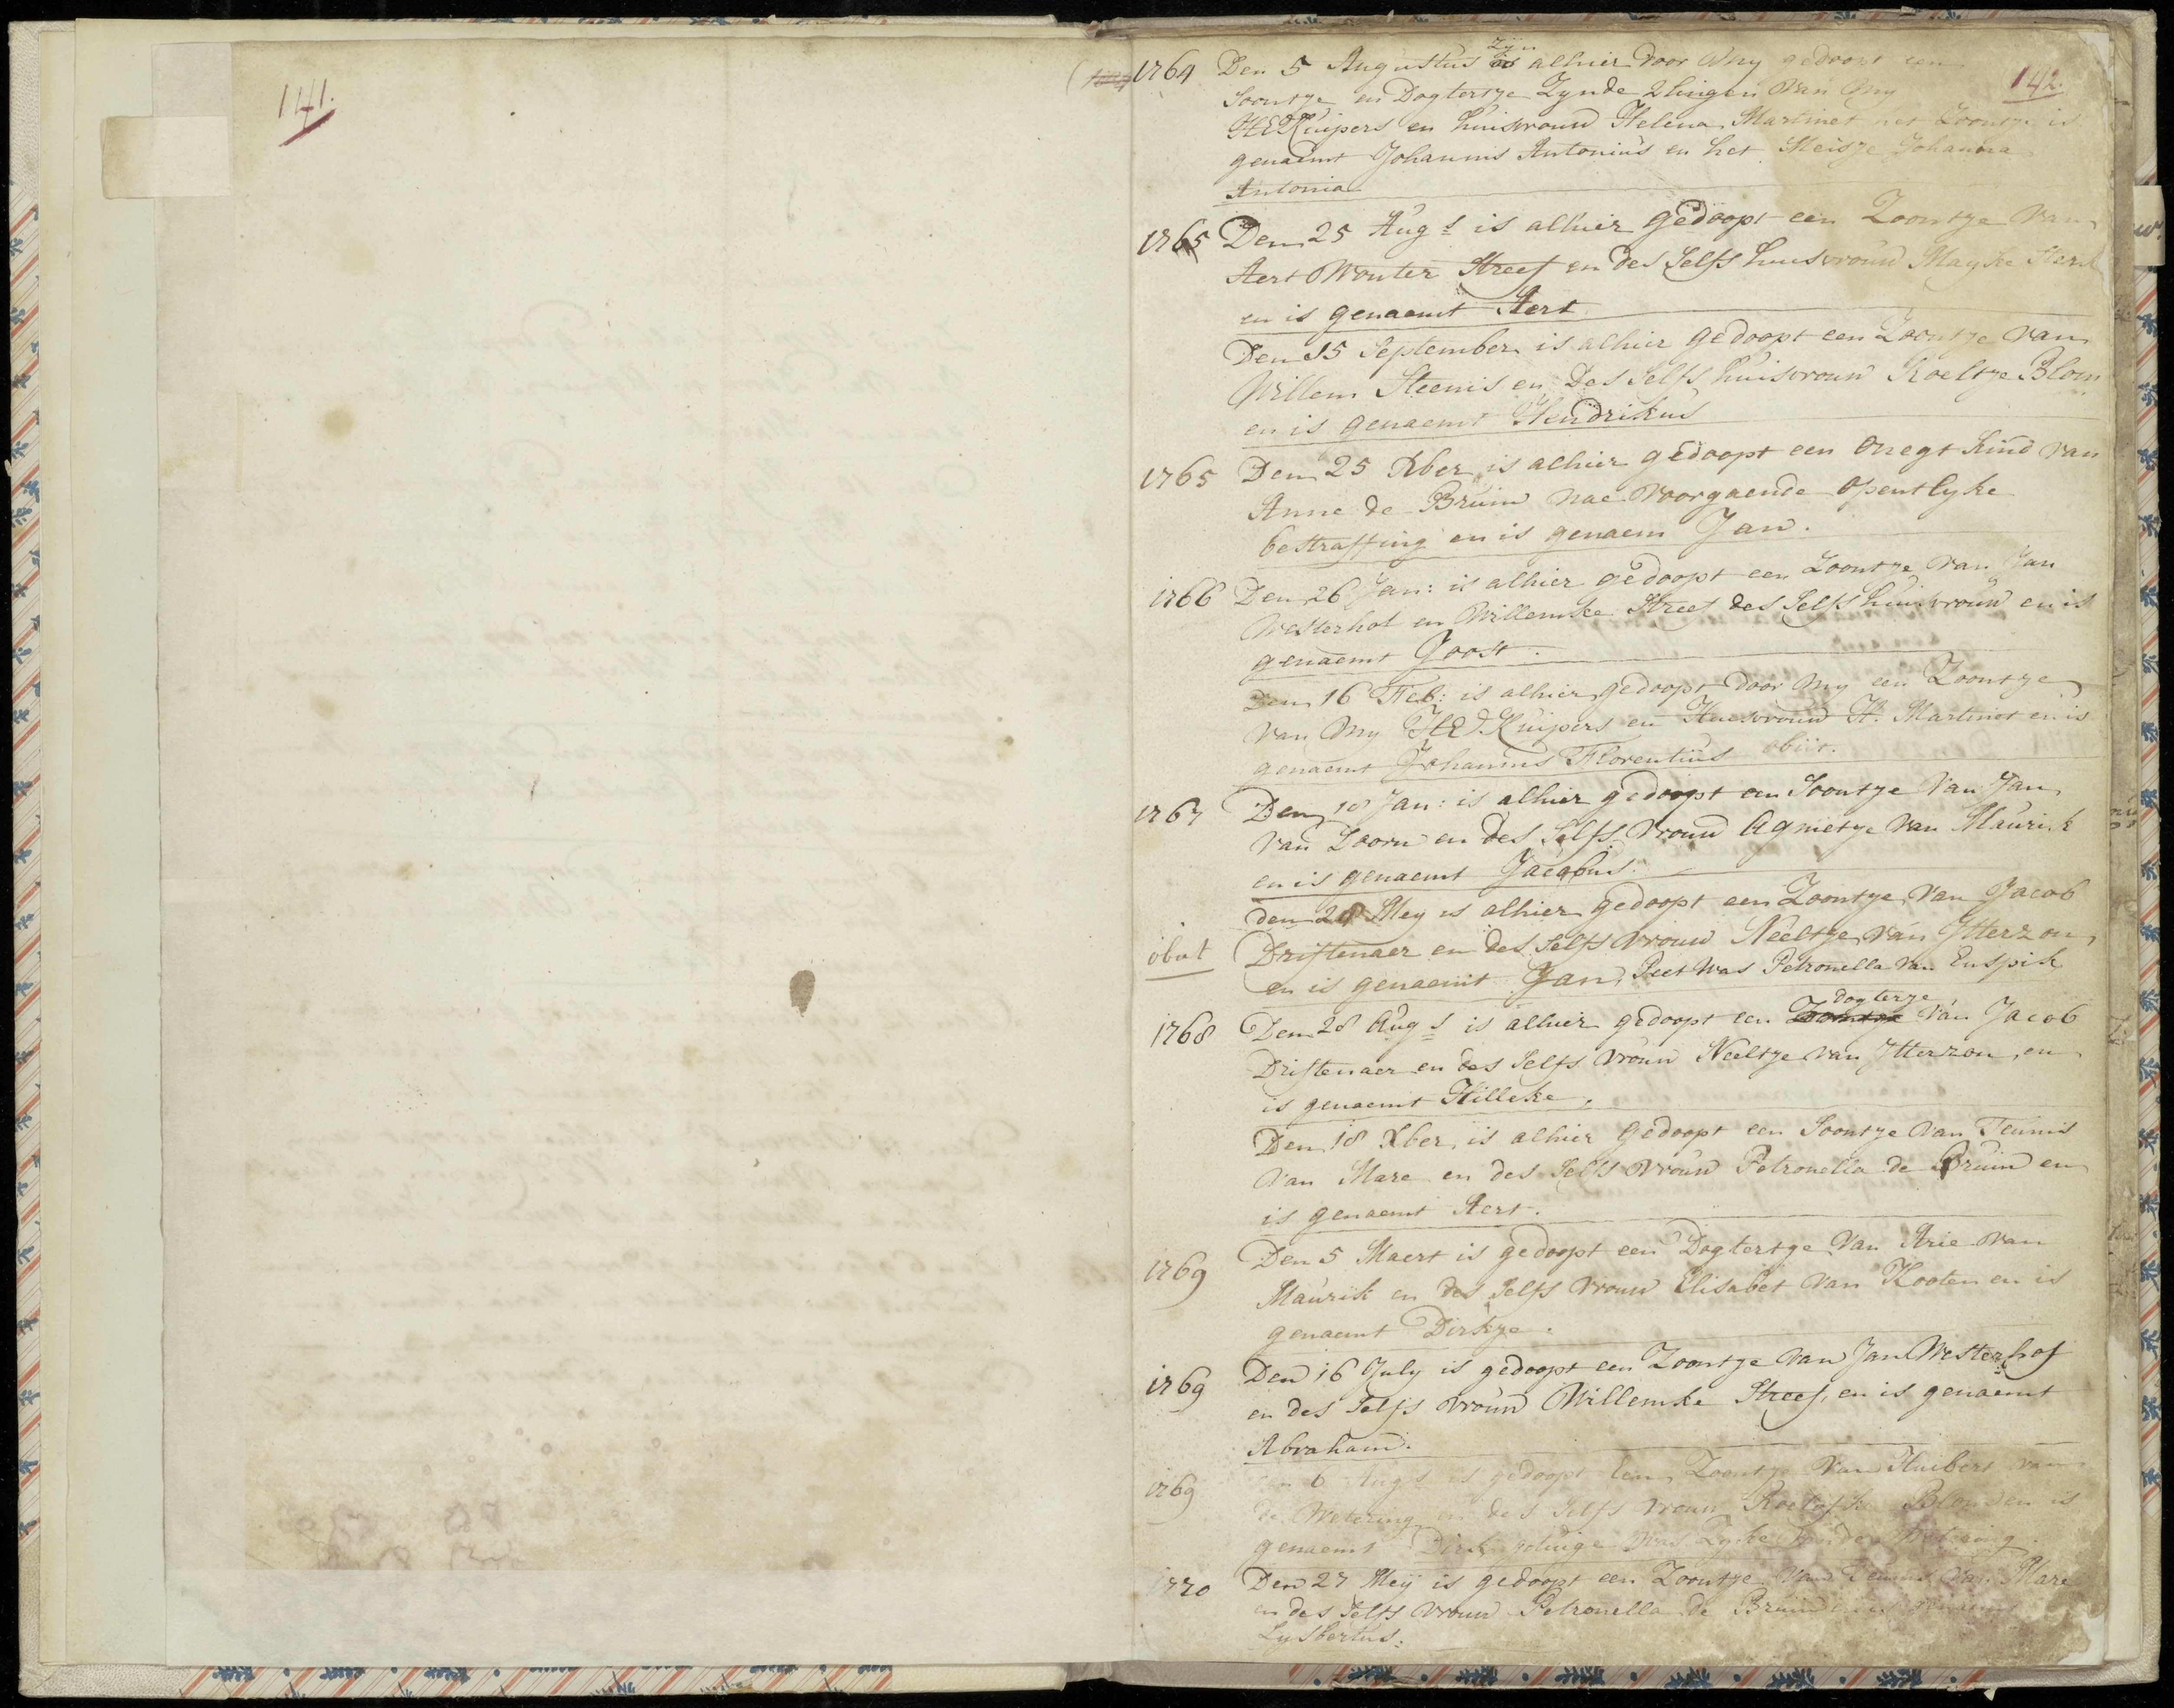 141.
142.
1764 Den 5 Augustus zijn alhier door My gedoopt een
Soontje en Dogtertje Zynde 2lingen van My
HEKuipers en huisvrouw Helena Martinet het Zoontje is
genaemt Johannis Antonius en het Meisje Johanna
Antonia
1765 Den 25 Augs is alhier gedoopt een Zoontje van
Aert Wouter Streef en des Selfs huisvrouw Mayke
en is genaemt Aert
Den 15 September is alhier gedoopt een Zoontje van
Willem Steenis en Des Selfs huisvrouw Roeltje Blom
en is genaemt Hendrikus
1765 Den 25 Xber is alhier gedoopt een Onegt kind van
Anne de Bruin nae voorgaende opentlyke
bestraffing en is genaem Jan.
1766 Den 26 Jan: is alhier gedoopt een Zoontje van Jan
Westerhof en Willemke Streef des Selfs huisvrouw en is
genaemt Joost.
Den 16 Feb: is alhier gedoopt door My een Zoontje
van My HEKuipers en Huesvrouw H. Martinet en is
genaemt Johannis Florentius obiit.
1767 Den 18 Jan: is alhier gedoopt een Soontje van Jan
van Doorn en des Selfs vrouw Agnietje van Maurik
en is genaemt Jacobus.
den 28 Mey is alhier gedoopt een Zoontje van Jacob
obiit Driftenaer en des Selfs vrouw Neeltje van Itterzon,
en is genaemt Jan, Peet was Petronella van Enspik
1768 Den 28 Augs is alhier gedoopt een Zoontje dogterje van Jacob
Driftenaer en des Selfs vrouw Neeltje van Itterzon, en
is genaemt Hilleke.
Den 18 Xber, is alhier gedoopt een Soontje van Teunis
van Mare en des Selfs vrouw Petronella de Bruin en
is genaemt Aert.
1769 Den 5 Maert is gedoopt een Dogtertge van Arie van
Maurik en des Selfs vrouw Elisabet van Kooten en is
genaemt Dirkje.
1769 Den 16 July is gedoopt een Zoontje van Jan Westerhof
en des Selfs vrouw Willemke Streef, en is genaemt
Abraham.
1769 Den 6 Augs is gedoopt een Zoontje van Huibert van
de Wetering en des Selfs vrouw Roelofke Blom en is
genaemt Dirk getuige was van de Wetering.
1770 Den 27 Meÿ is gedoopt een Zoontje van Teunis van Mare
en des Selfs vrouw Petronella de Bruin en is genaemt
Lysbertus.